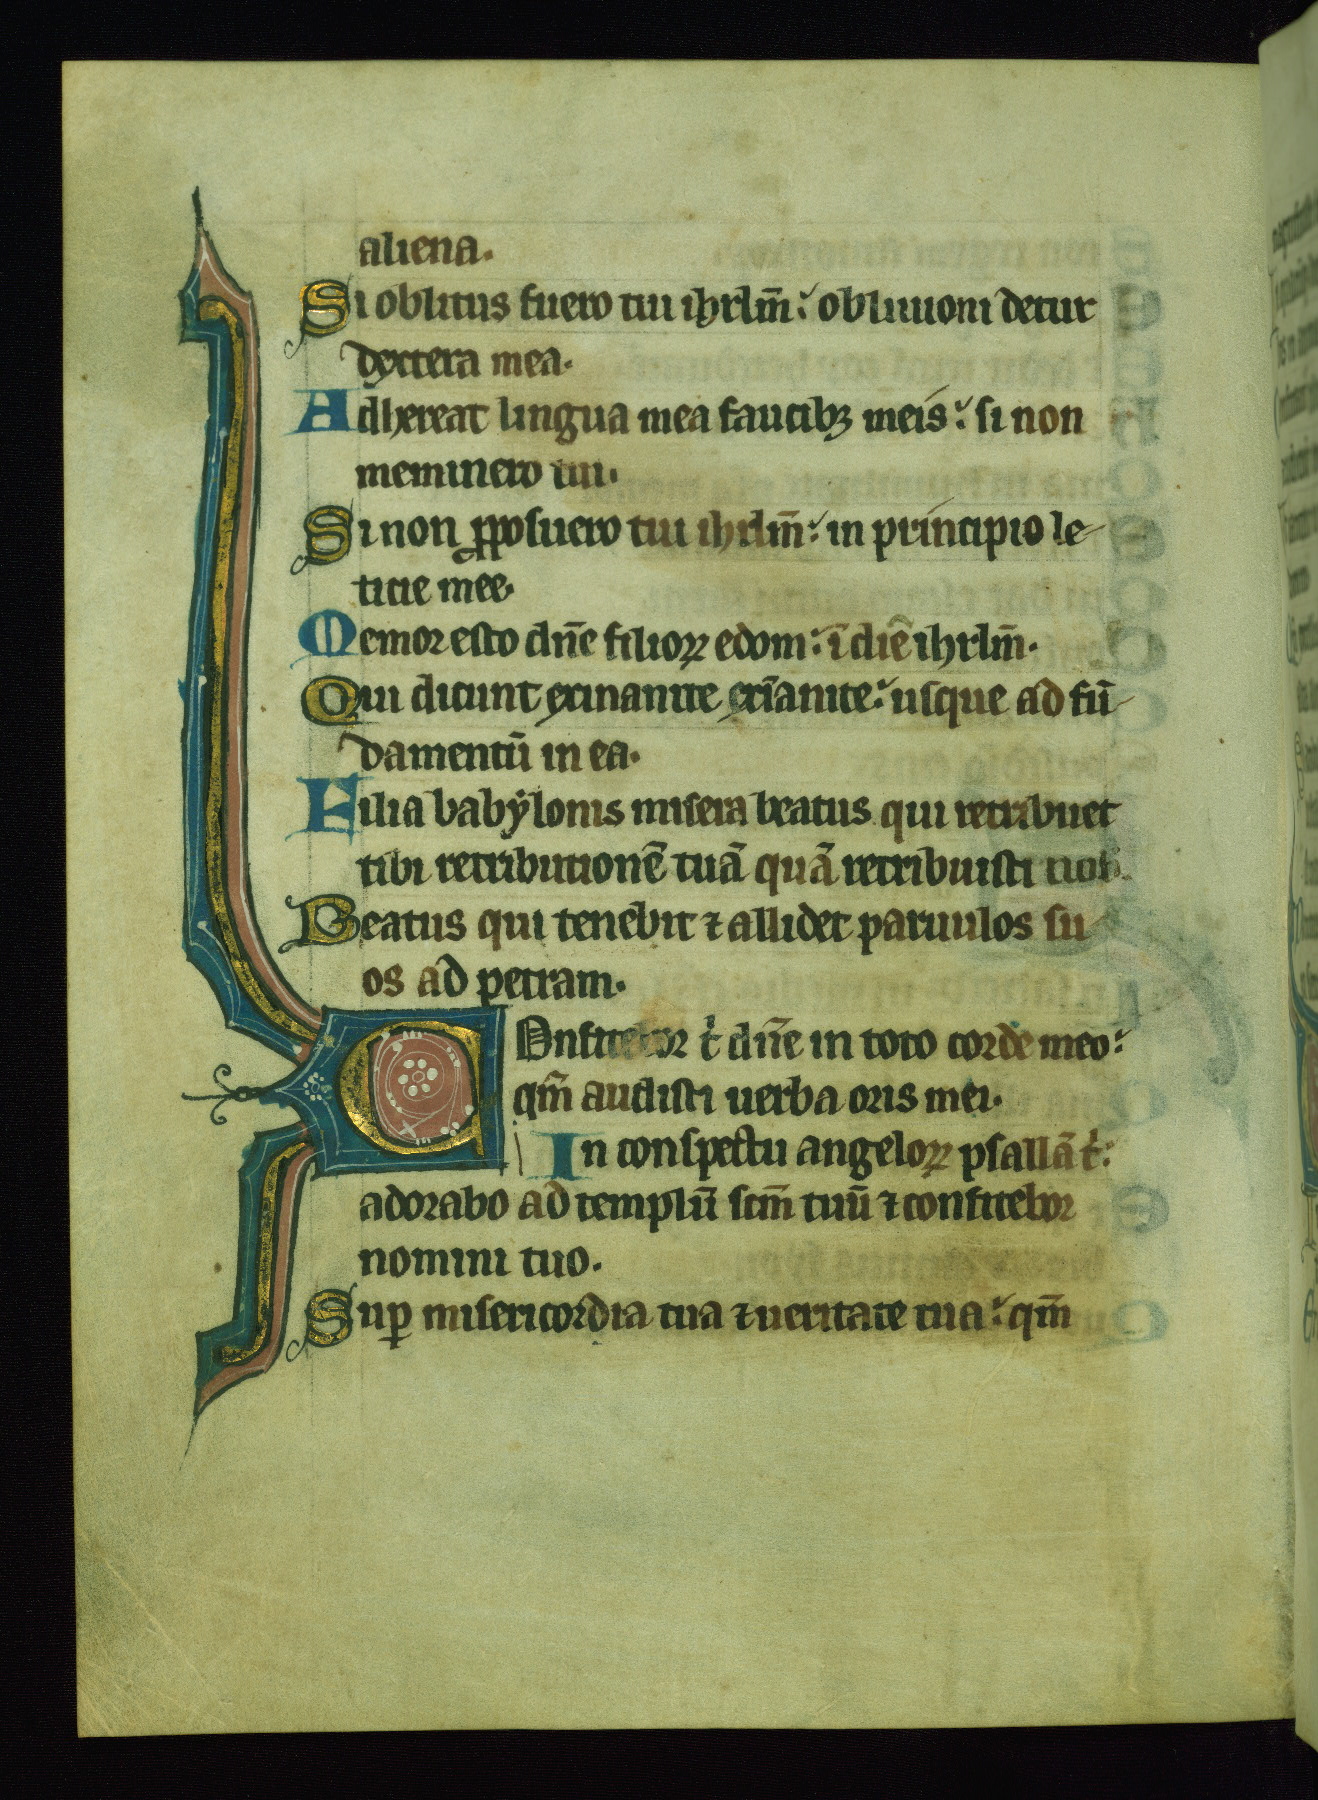 aliena.
Si oblitus fuero tui ihrlm̄: obliuioni detur
dextera mea.
Adhereat lingua mea faucibꝫ meis: si non
meminero tui.
Si non ꝓposuero tui ihrlm̄: in principio le-
ticie mee.
Memor esto dn̄e filioꝝ edom: ī die ihrlm̄.
Qui dicunt exinanite exīanite: usque ad fū-
damentū in ea.
Filia babẏlonis misera beatus qui retribuet
tibi retributionē tuā quā retribuisti nob̄.
Beatus qui tenebit ⁊ allidet paruulos su-
os ad petram.
COnfitebor t̄ dn̄e in toto corde meo:
qm̄ audisti uerba oris mei.
In conspectu angeloꝝ psallā t̄:
adorabo ad templū scm̄ tuū ⁊ confitebor
nomini tuo.
Suꝑ misericordia tua ⁊ ueritate tua: qm̄